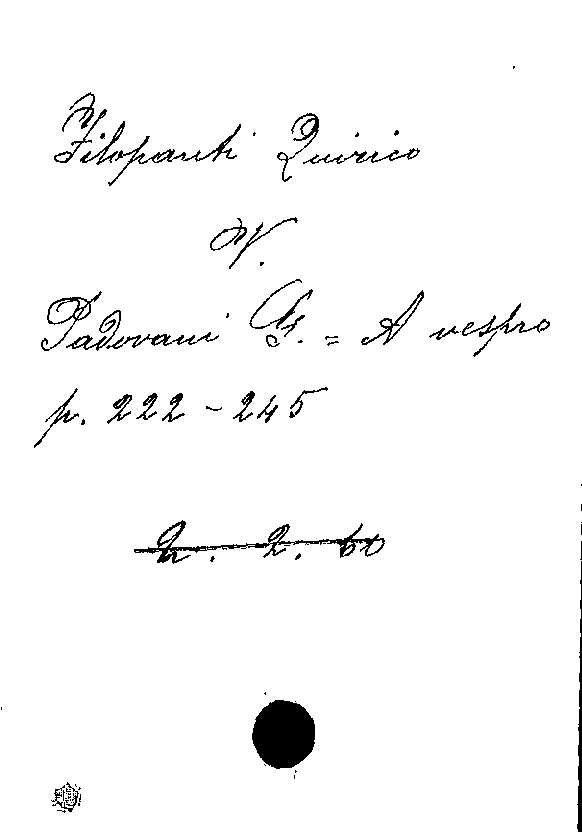 Filopanti Quirico
V.
Padovani G. = A vespro
p. 222 - 245
2. 60